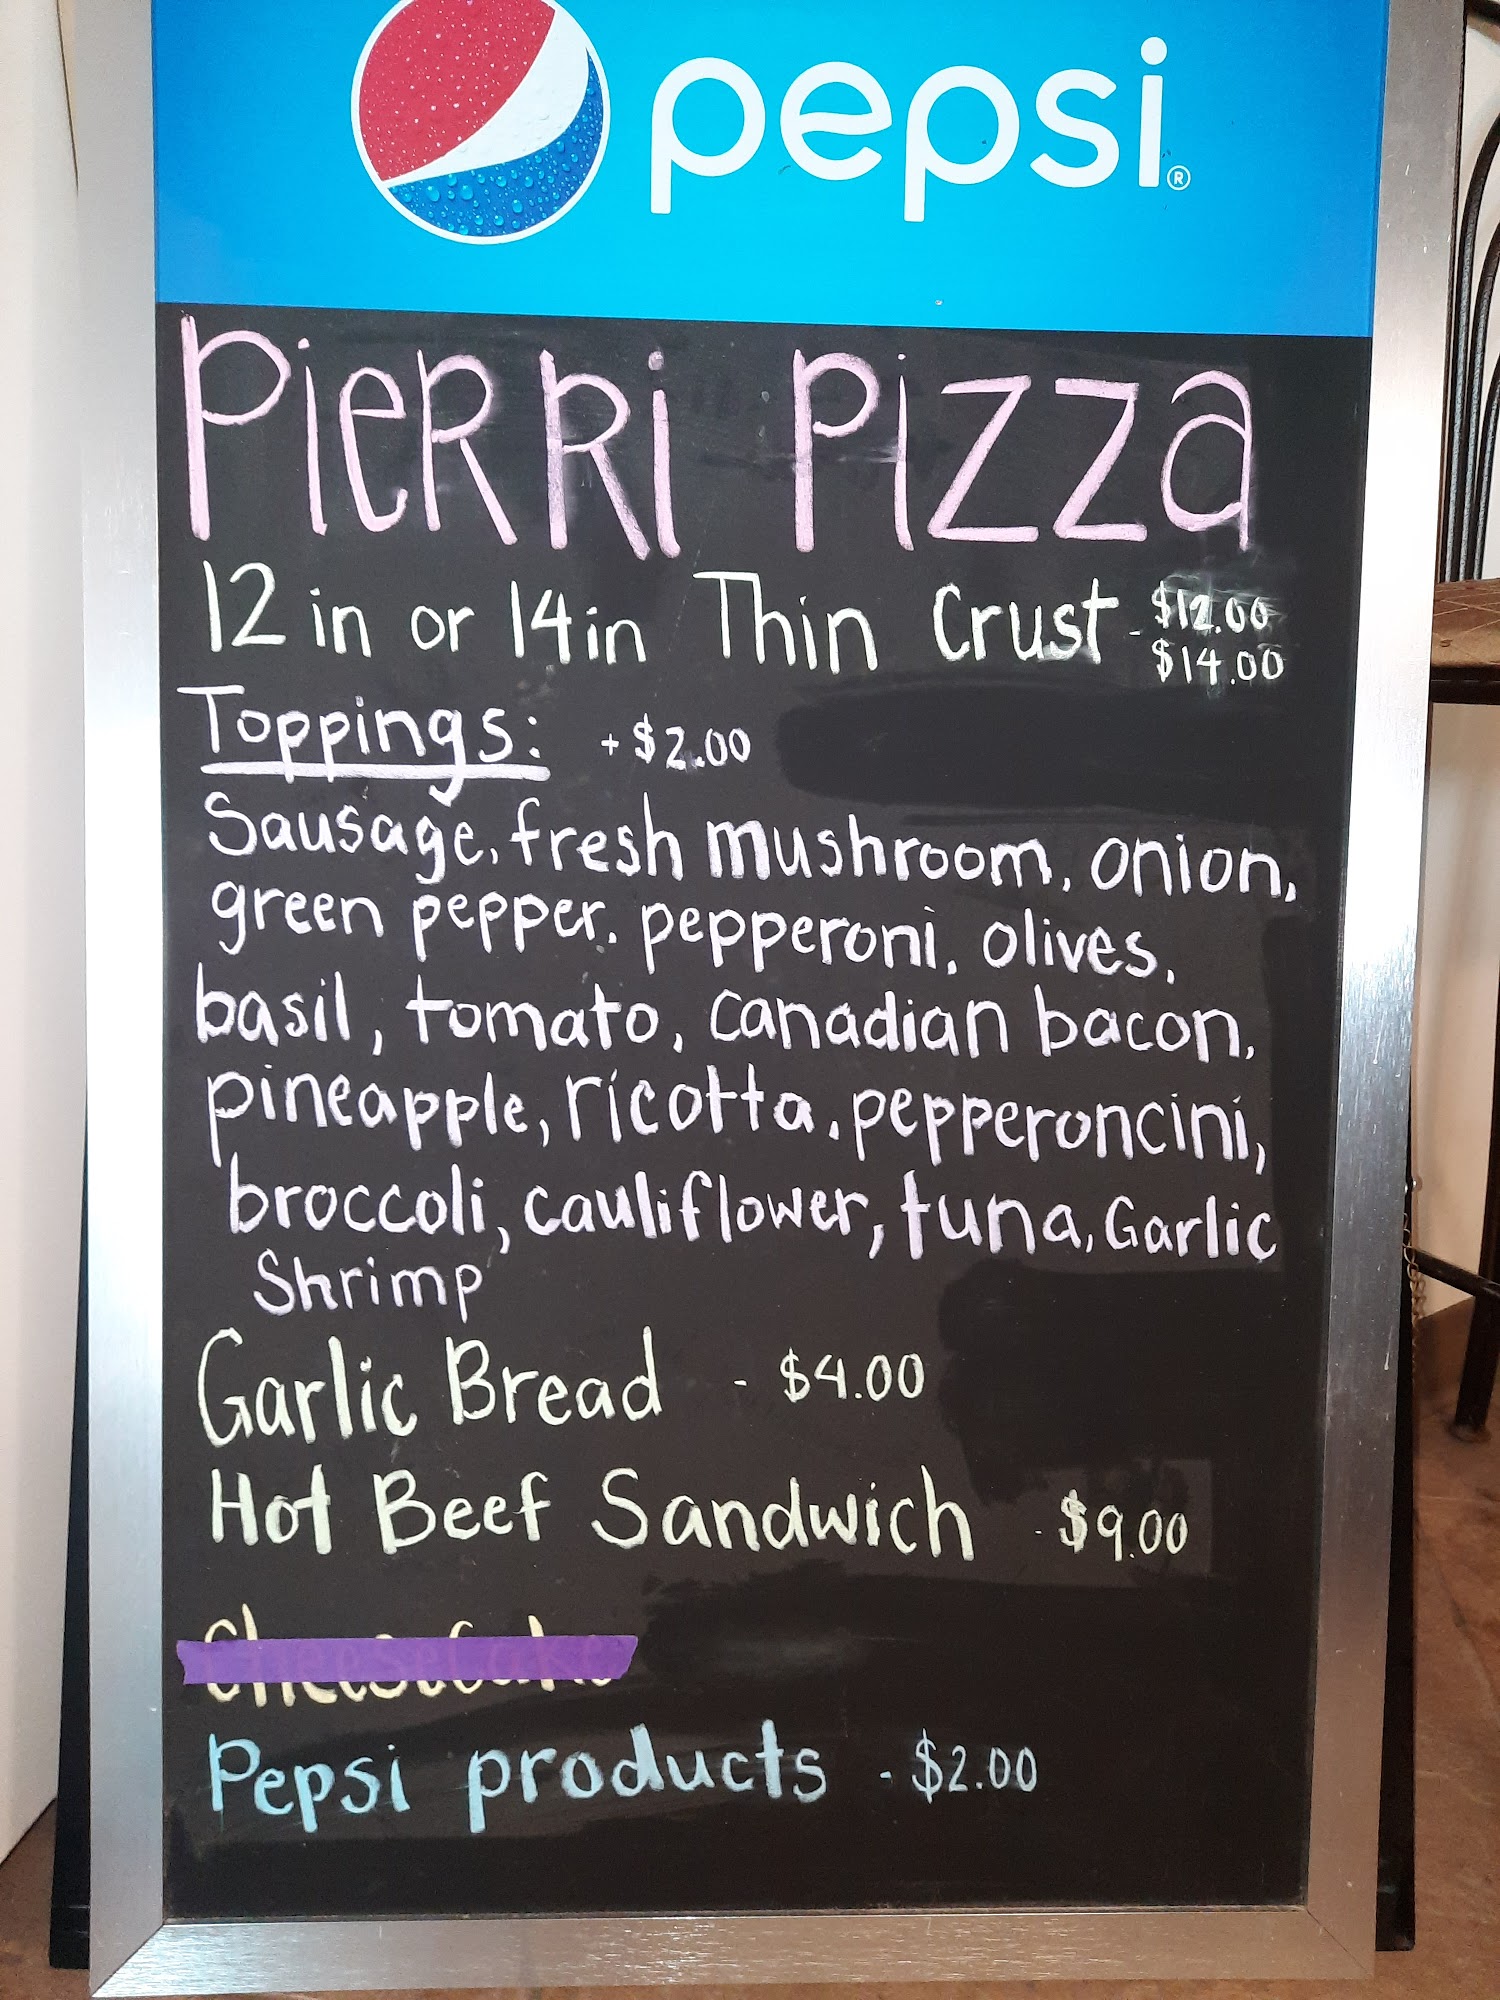 pepsi®
PieRRi Pizza
12 in or 14in Thin Crust - $12.00
$14.00
Toppings: + $2.00
Sausage, fresh mushroom, onion,
green pepper, pepperoni, olives,
basil, tomato, canadian bacon,
pineapple, ricotta, pepperoncini,
broccoli, cauliflower, tuna, Garlic
Shrimp
Garlic Bread - $4.00
Hot Beef Sandwich - $9.00
CheeseCake
Pepsi products - $2.00